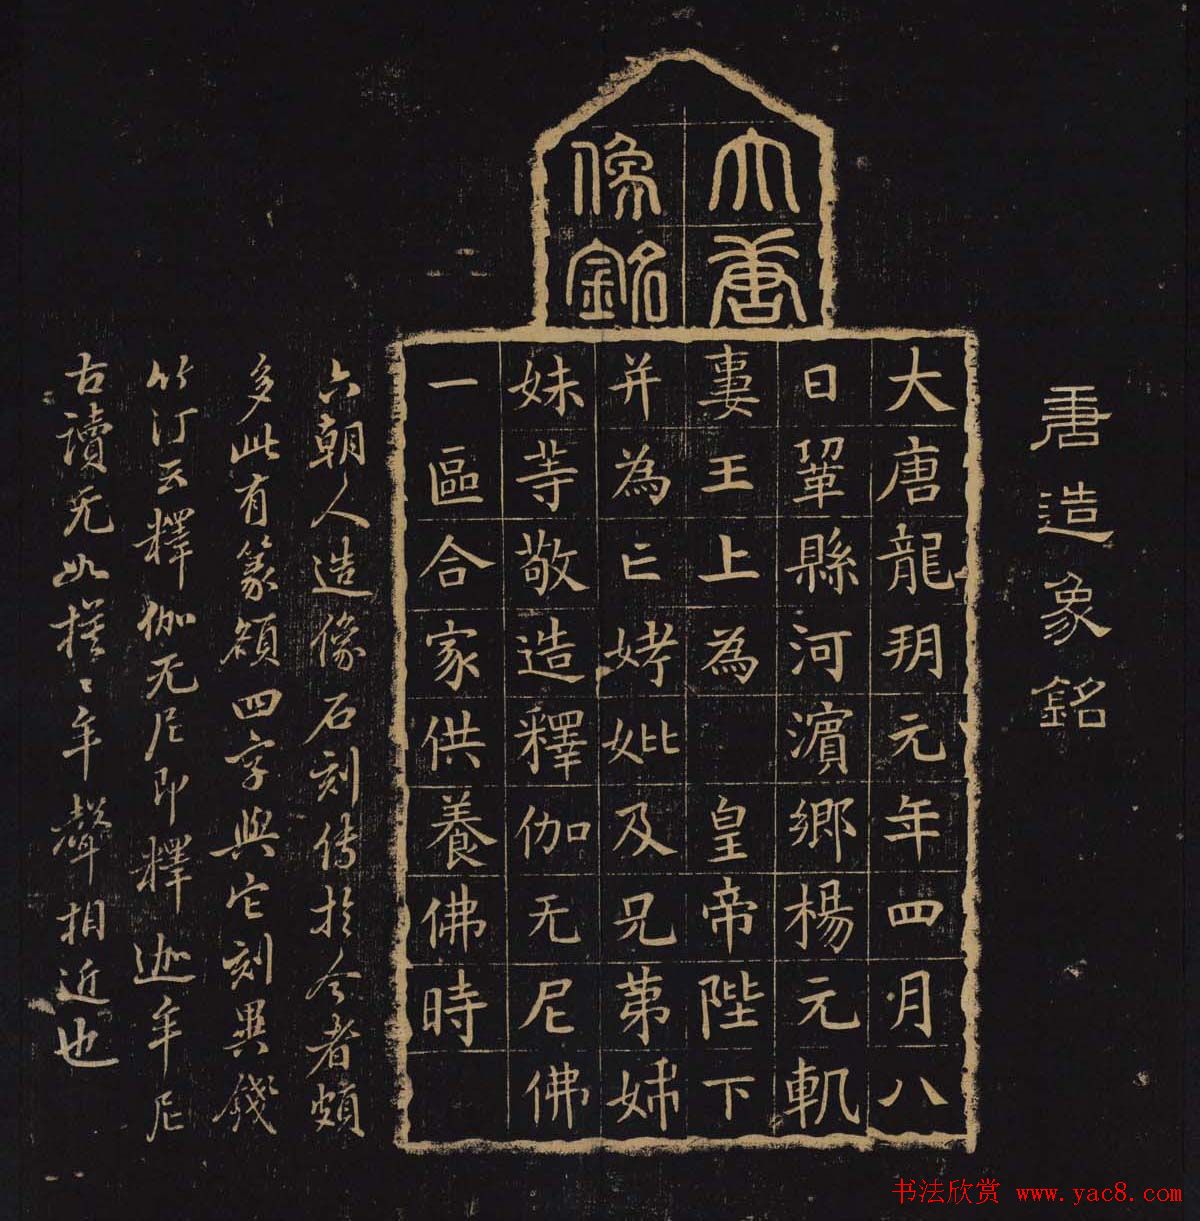 唐造象銘
大唐
像銘
大唐龍朔元年四月八
日鞏縣河濵鄉楊元軌
妻王上為 皇帝陛下
并為亡姥妣及兄弟姊
妹等敬造釋伽无尼佛
一區合家供養佛時
六朝人造像石刻傳於今者頗
多此有篆額四字與它刻異錢
竹汀云釋伽无尼即釋迦牟尼
古讀无如模〻牟聲相近也
书法欣赏 www.yac8.com